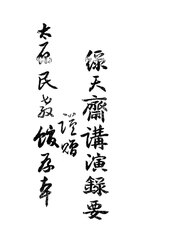 綠天齋講演錄要
謹贈
太石民教館存